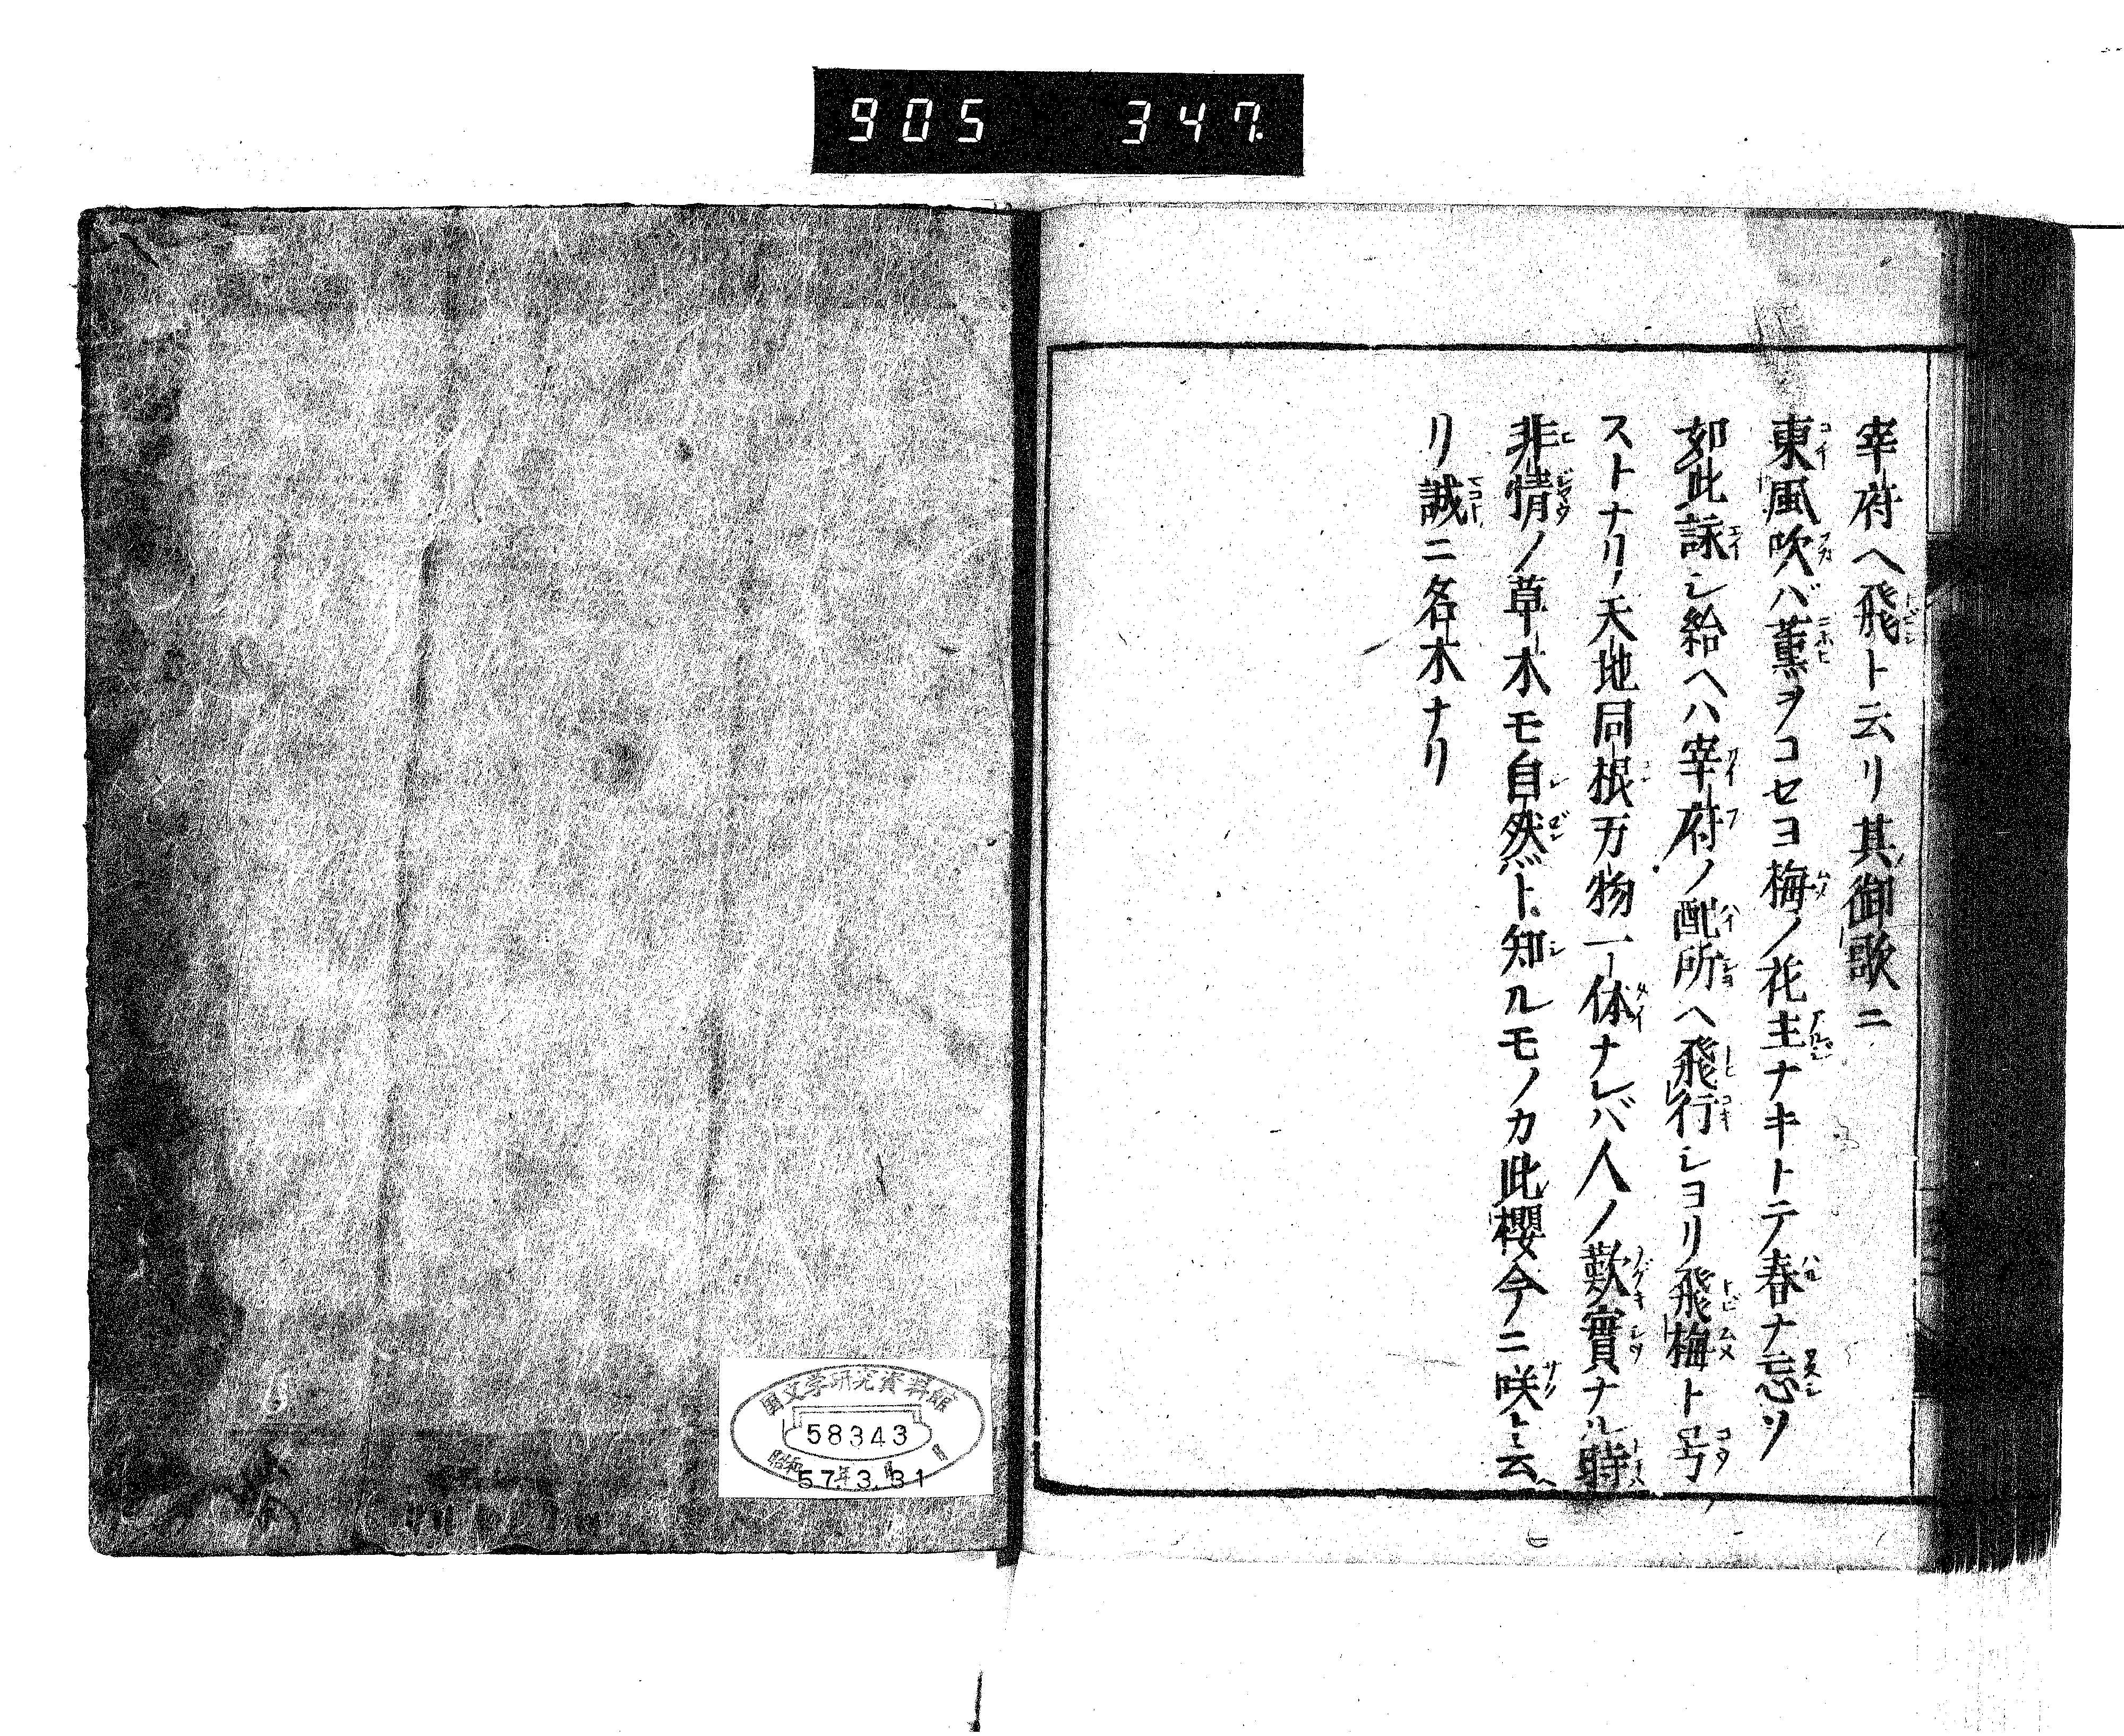 905 347
宰府ヘ飛ト云リ其御歌ニ
東風吹バ薫ヲコセヨ梅ノ花主ナキトテ春ナ忘ソ
如此詠シ給ヘハ宰府ノ配所ヘ飛行シヨリ飛梅ト号
ストナリ天地同根万物一体ナレバ人ノ歎實ナル時
非情ノ草木モ自然ト知ルモノカ此櫻今ニ咲ト云ヘ
リ誠ニ名木ナリ
国文学研究資料館
58343
昭和57年3月31日